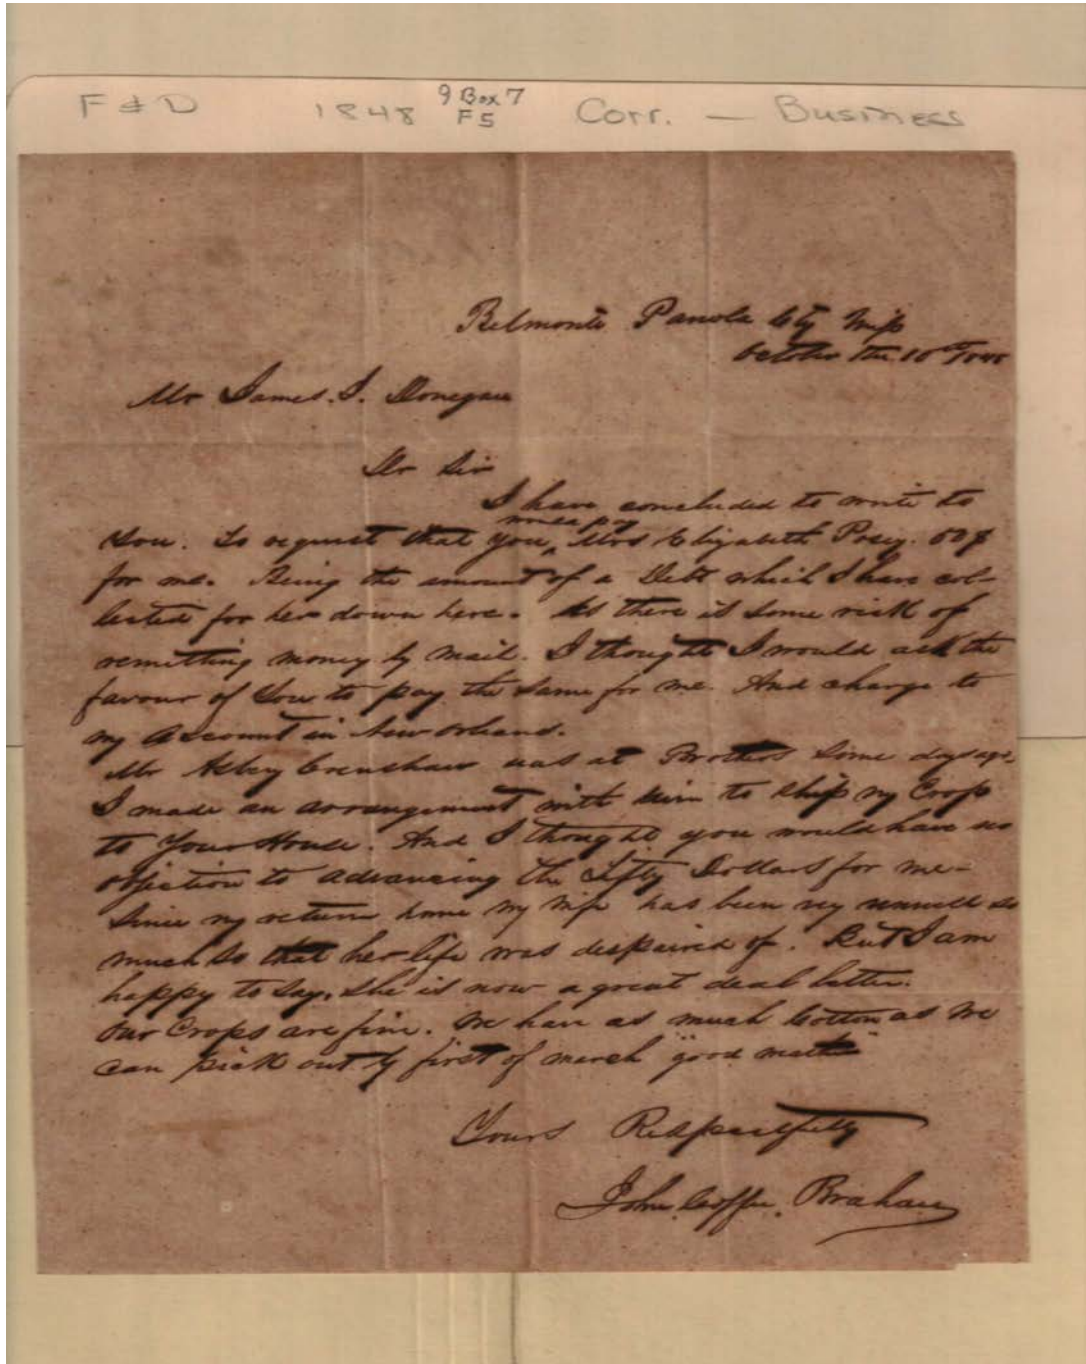 F & D 1848 9 Box 7 F5 Corr. — Business
Belmonte Panola Cty Miss
October the 10th 1848
Mr James. J. Donegan
Dr Sir
I have concluded to write to
You. To request that you Mrs Elizabeth Posey. 50$
for me. Being the amount of a Debt which I have col-
lected for her down here. As there is some risk of
remitting money by mail. I thought I would ask the
favour of You to pay the same for me. And charge to
my Account in New orleans.
Mr Crenshaw was at Brothers Some days ago.
I made an arrangement with him to ship my Crop
to Your House. And I thought you would have no
objection to advancing the Fifty Dollars for me-
Since my return home my wife has been very unwell so
much so that her life was despaired of. But I am
happy to Say. She is now a great deal better.
Our Crops are fine. We have as much Cotton as We
can pick out by first of march "good
Yours Respectfully
John. Coffee. Brahan